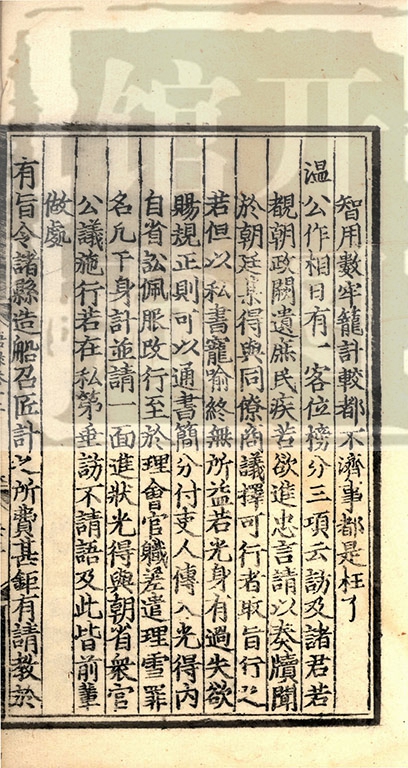 智用數牢籠計較都不濟事都是枉了
温公作相日有一客位榜分三項云訪及諸君若
覩朝政闕遺庶民疾苦欲進忠言請以奏牘聞
於朝廷某得與同僚商議擇可行者取旨行之
若但以私書寵喻終無所益若光身有過失欲
賜規正則可以通書簡分付吏人傳入光得内
自省訟佩服改行至於理會官職差遣理雪罪
名凡干身計並請一面進狀光得與朝省衆官
公議施行若在私第垂訪不請語及此皆前輩
做處
有旨令諸縣造船召匠計之所費甚鉅有請教於